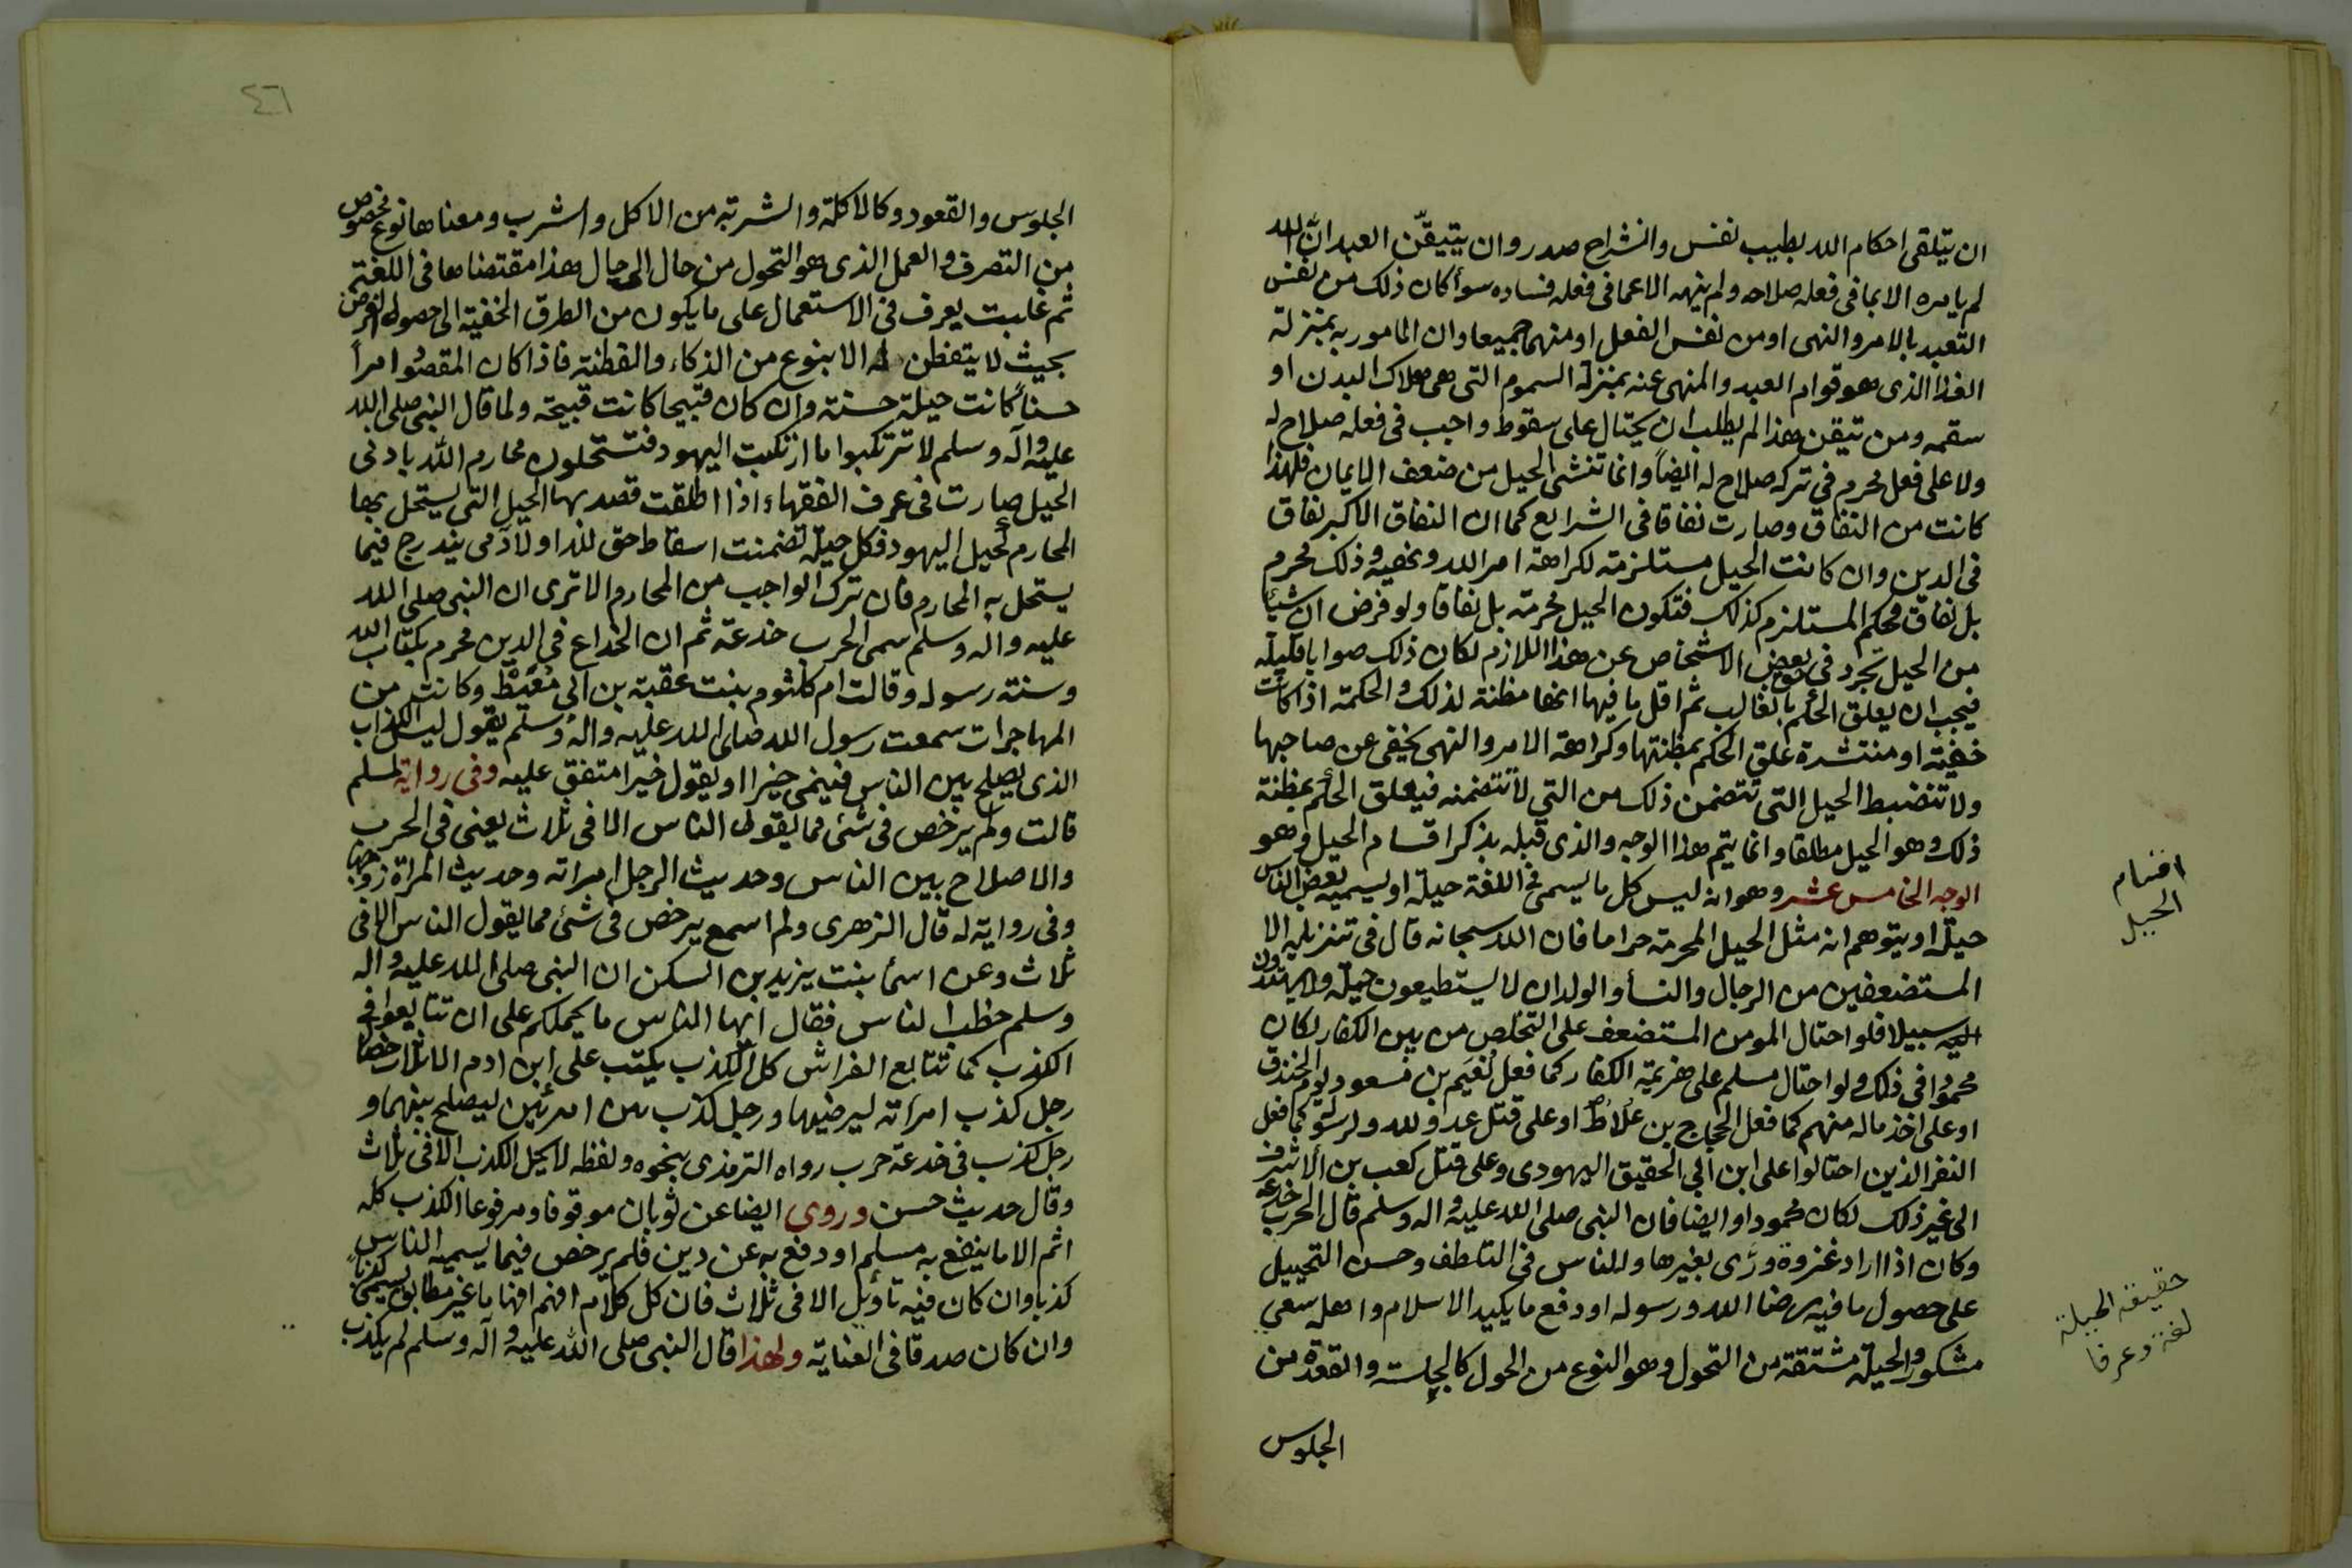 ان يتلقى احكام الله بطيب نفس وانشراح صدر وان يتيقّن العبد انّ الله
لم يامره الا بما في فعله صلاحه ولم ينهه الا عما في فعله فساده سوأ كان ذلك من نفس
التعبد بالامر والنهى او من نفس الفعل او منهما جميعا وان المامور به بمنزلة
الغذا الذى هو قوام العبد والمنهى عنه بمنزلة السموم التى هى هلاك البدن او
سقمه ومن تيقن هذا لم يطلب ان يحتال على سقوط واجب فى فعله صلاح له
ولا على فعل محرم فى تركه صلاح له ايضاً وانما تنشى الحيل من ضعف الايمان فلهذا
كانت من النفاق وصارت نفاقا فى الشرايع كما ان النفاق الاكبر نفاق
فى الدين وان كانت الحيل مستلزمة لكراهة امر الله ونهيه وذلك محرم
بل نفاق فحكم المستلزم كذلك فتكون الحيل محرمة بل نفاقا ولو فرض ان شيأ
من الحيل تجرد فى بعض الاشخاص عن هذا اللازم لكان ذلك صوابا قليلة
فيجب ان يعلق الحكم بالغالب ثم اقل ما فيها انها مظنة لذلك والحكمة اذا كانت
خفية او منتشرة علق الحكم بمظنتها وكراهة الامر والنهى يخفى عن صاحبها
ولا تنضبط الحيل التى تتضمن ذلك من التي لا تتضمنه فيعلق الحكم بمظنة
ذلك وهو الحيل مطلقا وانما يتم هذا الوجه والذى قبله بذكر اقسام الحيل وهو
الوجه الخامس عشر وهو انه ليس كل ما يسمى فى اللغة حيلة او يسميه بعض الناس
حيلة او يتوهم انه مثل الحيل المحرمة حراما فان الله سبحانه قال فى تنزيله الا
المستضعفين من الرجال والنسأ والولدان لا يستطيعون حيلة ولا يهتدون
اليه سبيلا فلو احتال المومن المستضعف على التخلص من بين الكفار لكان
محمودا فى ذلك ولو احتال مسلم على هزيمة الكفار كما فعل نُعَيم بن مسعود يوم الخندق
او على اخذ ماله منهم كما فعل الحجاج بن عُلاط او على قتل عدو لله ولرسوله كما فعل
النفر الذين احتالوا على ابن ابي الحقيق اليهودى وعلى قتل كعب بن الاشرف
الى غير ذلك لكان محمودا وايضا فان النبى صلى الله عليه واله وسلم قال الحرب خدعه
وكان اذا اراد غزوة ورّى بغيرها وللناس فى التلطف وحسن التحييل
على حصول ما فيه رضا الله ورسوله او دفع ما يكيد الاسلام واهله سعى
مشكور والحيلة مشتقة من التحول وهو النوع من الحول كالجِلسة والقعدة من
الجلوس
اقسام
الحيل
حقيقة الحيلة
لغة وعرفا
٤٦
الجلوس والقعود وكالاكلة والشربة من الاكل والشرب ومعناها نوع مخصوص
من التصرف والعمل الذى هو التحول من حال الى حال هذا مقتضاها فى اللغة
ثم غلبت بعرف فى الاستعمال على ما يكون من الطرق الخفية الى حصول الغرض
بحيث لا يتفطن له الا بنوع من الذكاء والفطنة فاذا كان المقصود امراً
حسناً كانت حيلة حسنة وان كان قبيحا كانت قبيحة ولما قال النبى صلى الله
عليه وآله وسلم لا ترتكبوا ما ارتكبت اليهود فتستحلون محارم الله بادنى
الحيل صارت فى عرف الفقهاء اذا اطلقت قصد بها الحيل التى يستحل بها
المحارم كحيل اليهود فكل حيلة تضمنت اسقاط حق لله او لآدمى يندرج فيما
يستحل به المحارم فان ترك الواجب من المحارم الا ترى ان النبى صلى الله
عليه واله وسلم سمى الحرب خدعة ثم ان الخداع فى الدين محرم بكتاب الله
وسنة رسوله وقالت ام كلثوم بنت عقبة بن ابي مُعَيط وكانت من
المهاجرات سمعت رسول الله صلى الله عليه واله وسلم يقول ليس الكذاب
الذى يصلح بين الناس فينمى خيرا او يقول خيرا متفق عليه وفى رواية لمسلم
قالت ولم يرخص فى شئ مما يقول الناس الا فى ثلاث يعنى فى الحرب
والاصلاح بين الناس وحديث الرجل امراته وحديث المراة زوجها
وفى رواية له قال الزهرى ولم اسمع يرخص فى شئ مما يقول الناس الا فى
ثلاث وعن اسمأ بنت يزيد بن السكن ان النبى صلى الله عليه واله
وسلم خطب الناس فقال ايها الناس ما يحملكم على ان تتايعوا فى
الكذب كما تتتايع الفراش كل الكذب يكتب على ابن ادم الا ثلاث خصال
رجل كذب امرأته ليرضيها ورجل كذب بين امرئين ليصلح بينهما و
رجل كذب فى خدعة حرب رواه الترمذى بنحوه ولفظه لا يحل الكذب الا فى ثلاث
وقال حديث حسن وروى ايضا عن ثوبان موقوفا ومرفوعا الكذب كله
اثم الا ما ينفع به مسلم او دفع به عن دين فلم يرخص فيما يسميه الناس
كذبا وان كان فيه تأويل الا فى ثلاث فان كل كلام افهم افهاما غير مطابق يسمى كذباً
وان كان صدقا فى العناية ولهذا قال النبى صلى الله عليه وآله وسلم لم يكذب